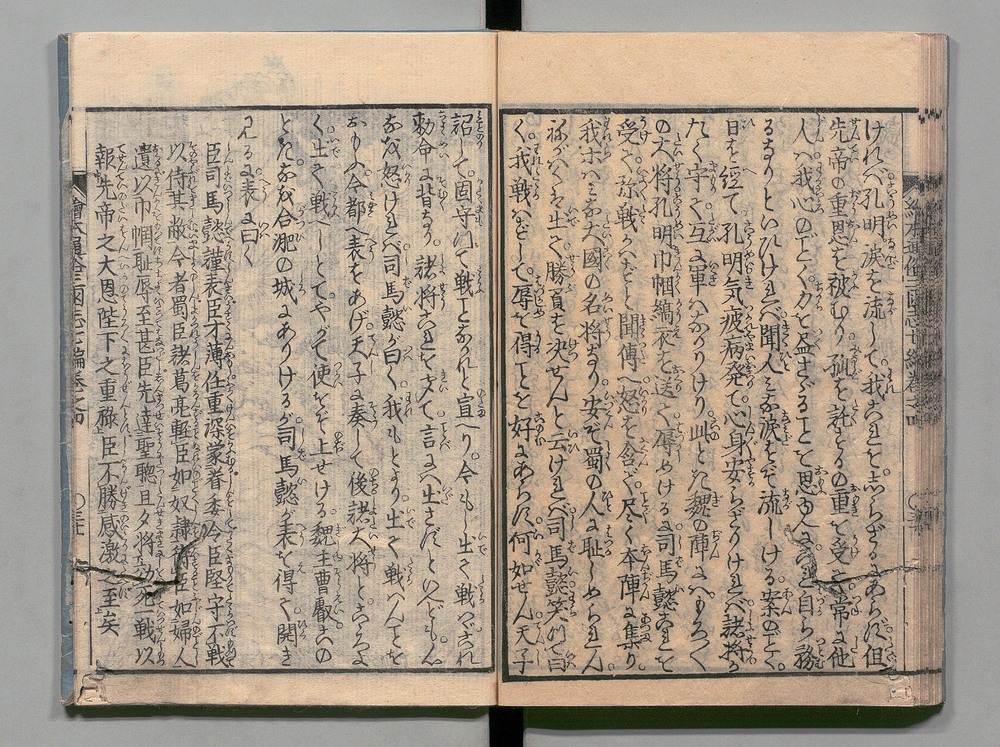 けれバ孔明涙を流して我これを志らざるにあらバ但
先帝の重恩を被むり孤を託するの重を受く常に他
人ハ我心のごく力を盡さゞることを思ふ人ゆゑ自ら務
るなりといひけれバ聞人ミな涙をぞ流しける案のごく
日を経て孔明気疲病発て心身安からざりけれバ諸将
たゞ守て互に軍ハなかりけり此とき魏の陣にハもろく
の大将孔明巾幗縞衣を送て辱めける司馬懿これを
受て弥戦ハざると聞傳へ怒を含て尽く本陣に集り
我ホハミな大國の名将なり安ぞ蜀の人に恥しめられん
ねがハくハ生て勝負を决せんと云けれバ司馬懿笑って曰
く我戦ハざして辱を得ことを好にあらバ何如せん天子
詔して固守って戦ことなかれと宣へり今もし生て戦ハゞこれ
勅命に背なり諸将これをきゝて言にハ生さバといへども
なを怒けれバ司馬懿が曰く我もとより生て戦ハんことを
おもへ今都へ表をあげ天子に奏して後諸大将とこゝろよ
く生て戦べしとてやがて使をぞ上せける魏主曹叡この
ときなを合淝の城にありけるが司馬懿が表を得て開き
見るに表に曰く
臣司馬懿謹表臣才薄任重深蒙眷委令臣堅守不戰
以待其敝今者蜀臣諸葛亮輕臣如奴隸待臣如婦人
遺以巾幗恥辱至甚臣先達聖聰旦夕將効死戰以
報先帝之大恩陛下之重祿臣不勝感激之至矣